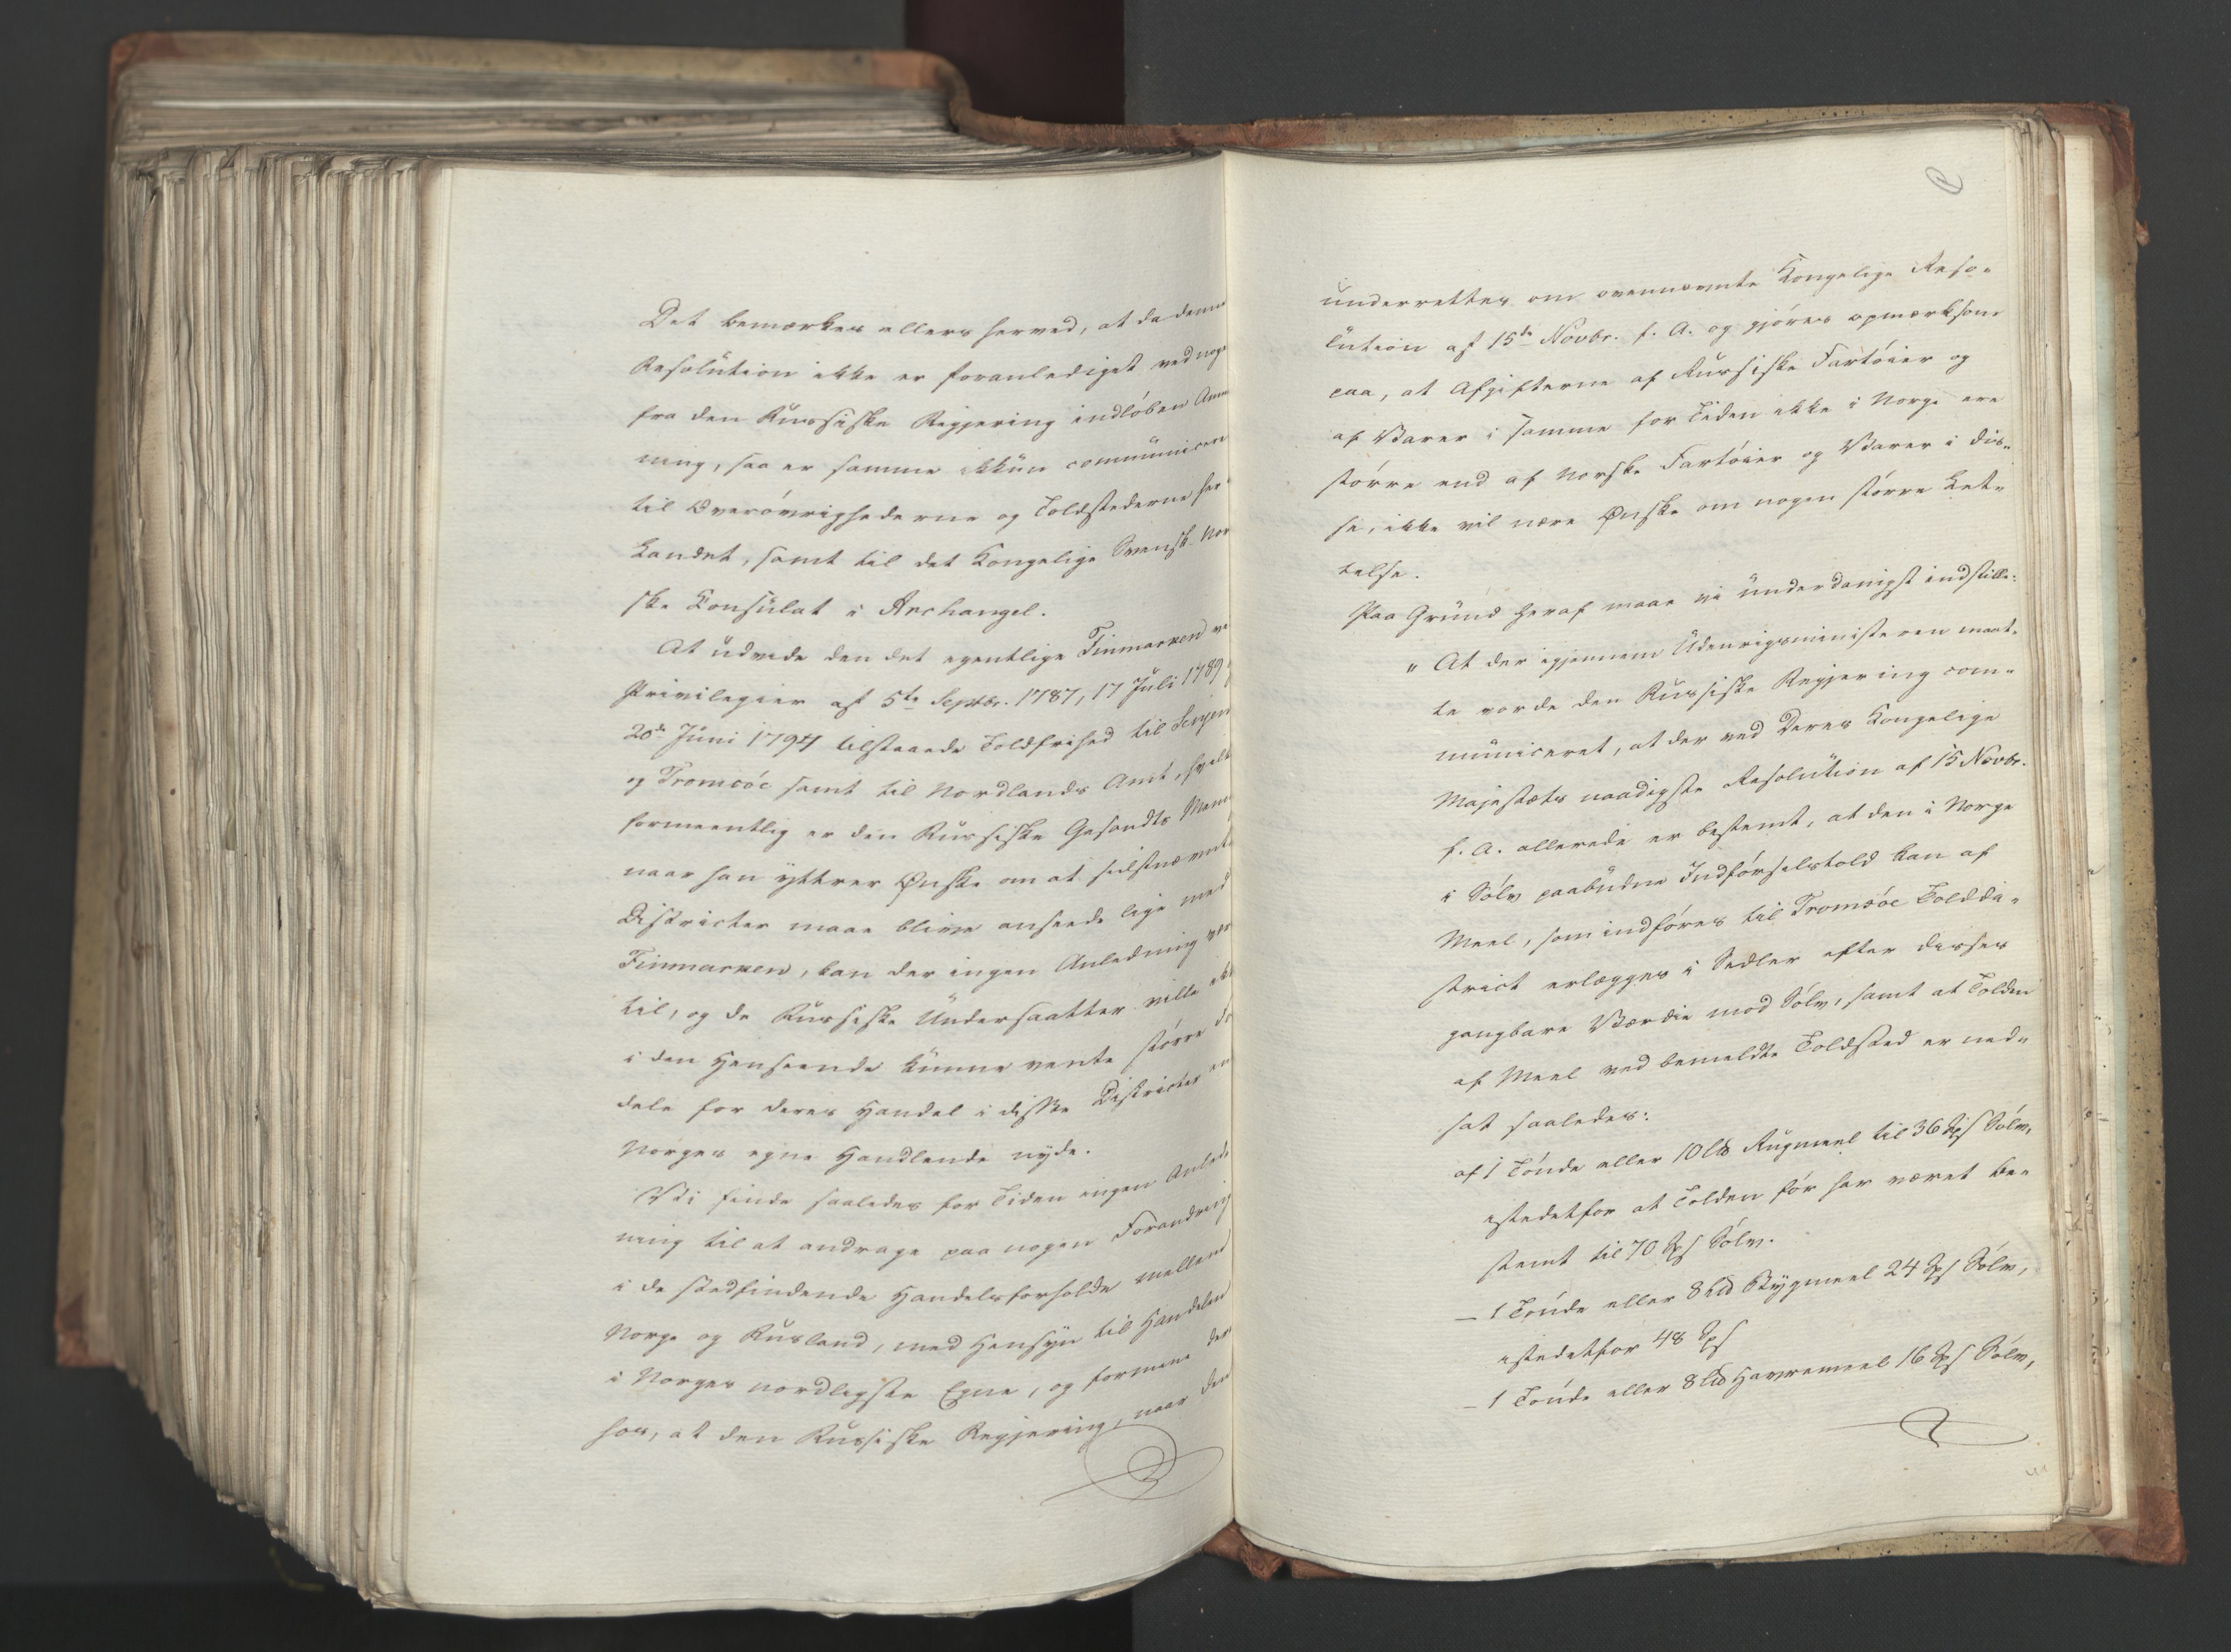 Det bemærkes ellers herved, at da denne
Resolution ikke er foranlediget ved noge
fra den Russiske Regjering indløben Anm
ning, saa er samme ikkun communicer
til Overøvrighederne og Toldstederne her i
Landet, samt til det Kongelige Svensk-Nor
ske Consulat i Archangel.
At udvide den det egentlige Finmarken ve
Privilegier af 5te Septbr. 1787, 17 Juli 1789 
20de Juni 1794 tilstaaede Toldfrihed til Senjen
og Tromsøe samt til Nordlands Amt, hvilk
formeentlig er den Russiske Gesandts Mening
naar han yttrer Ønske om at sidstnævnte
Districter maae blive ansaede lige med
Finmarken, kan der ingen Anledning være
til, og de Russiske Undersaatter ville ikke
i den Henseende kunne vente større For
dele for deres Handel i disse Districter en
Norges egne Handlende nyde.
Vi finde saaledes for Tiden ingen Anled
ning til at andrage paa nogen Forandring
i de stedfindende Handelsforholde mellem
Norge og Rusland, med Hensyn til Handelen
i Norges nordligste Egne, og formene der
hos, at den Russiske Regjering, naar den
underrettes om ovennævnte Kongelige Reso-
lution af 15de Novbr. f. A. og gjøres opmærksom
paa, at Afgifterne af Russiske Fartøier og
af Varer i samme for Tiden ikke i Norge ere
større end af Norske Fartøier og Varer i dis-
se, ikke vil nære Ønske om nogen større Let-
telse.
Paa Grund heraf maae vi underdanigst indstille:
" At der igjennem Udenrigsministeren maat-
te vorde den Russiske Regjering com-
municeret, at der ved Deres Kongelige
Majestæts naadigste Resolution af 15 Novbr.
f. A. allerede er bestemt, at den i Norge
i Sølv paabudne Indførselstold kan af
Meel, som indføres til Tromsøe Tolddi-
strict erlægges i Sedler efter disses
gangbare Værdie mod Sølv, samt at Tolden
af Meel ved bemeldte Toldsted er ned-
sat saaledes:
af 1 Tønde eller 10 L℔ Rugmeel til 36 Sps Sølv,
istedetfor at Tolden før har været be-
stemt til 70 Sps Sølv.
— 1 Tønde eller 8 L℔ Bygmeel 24 Sps Sølv,
istedetfor 48 Sps
— 1 Tønde eller 8 L℔ Havremeel 16 Sps Sølv,